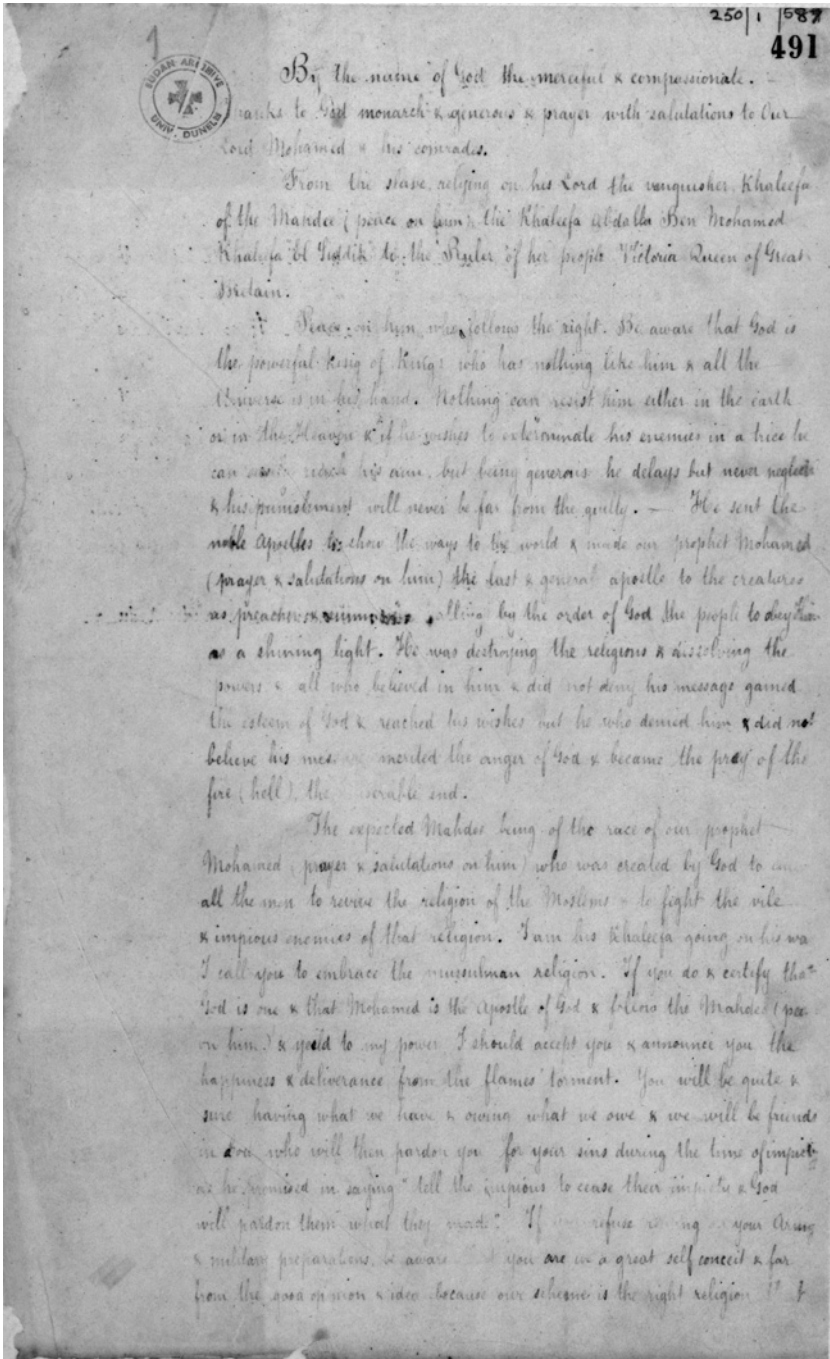 250/1/587
491
1
SUDAN ARCHIVE
UNIV. DUNELM
By the name of God the merciful & compassionate.
Thanks to God monarch & generous & prayer with salutations to Our
Lord Mohamed & his comrades.
From the slave relying on his Lord the vanquisher, Khaleefa
of the Mahdee (peace on him) the Khaleefa Abdalla Ben Mohamed
Khaleefa El Siddik to the Ruler of her people Victoria Queen of Great
Britain.
Peace on him who follows the right. Be aware that God is
the powerful King of Kings who has nothing like him & all the
Universe is in his hand. Nothing can resist him either in the earth
or in the Heaven & if he wishes to exterminate his enemies in a trice he
can reach his aim, but being generous he delays but never neglects
& his punishment will never be far from the guilty. — He sent the
noble Apostles to show the ways to the world & made our prophet Mohamed
(prayer & salutations on him) the last & general apostle to the creatures
as preacher & calling by the order of God the people to obey Him
as a shining light. He was destroying the religions & dissolving the
powers & all who believed in him & did not deny his message gained
the esteem of God & reached his wishes but he who denied him & did not
believe his message merited the anger of God & became the pray of the
fire (hell), the miserable end.
The expected Mahdee being of the race of our prophet
Mohamed (prayer & salutations on him) who was created by God to
all the men to revive the religion of the Moslems - to fight the vile
& impious enemies of that religion. I am his Khaleefa going on his wa
I call you to embrace the mussulman religion. If you do & certify that
God is one & that Mohamed is the Apostle of God & follow the Mahdee (pea
on him) & yeild to my power I should accept you & announce you the
happiness & deliverance from the flames' torment. You will be quite &
sure having what we have & owing what we owe & we will be friends
in God who will then pardon you for your sins during the time of impiety
as he promised in saying "tell the impious to cease their impiety & God
will pardon them what they made." If you refuse relying on your Army
& military preparations, be aware that you are in a great self conceit & far
from the good opinion & idea because our scheme is the right religion